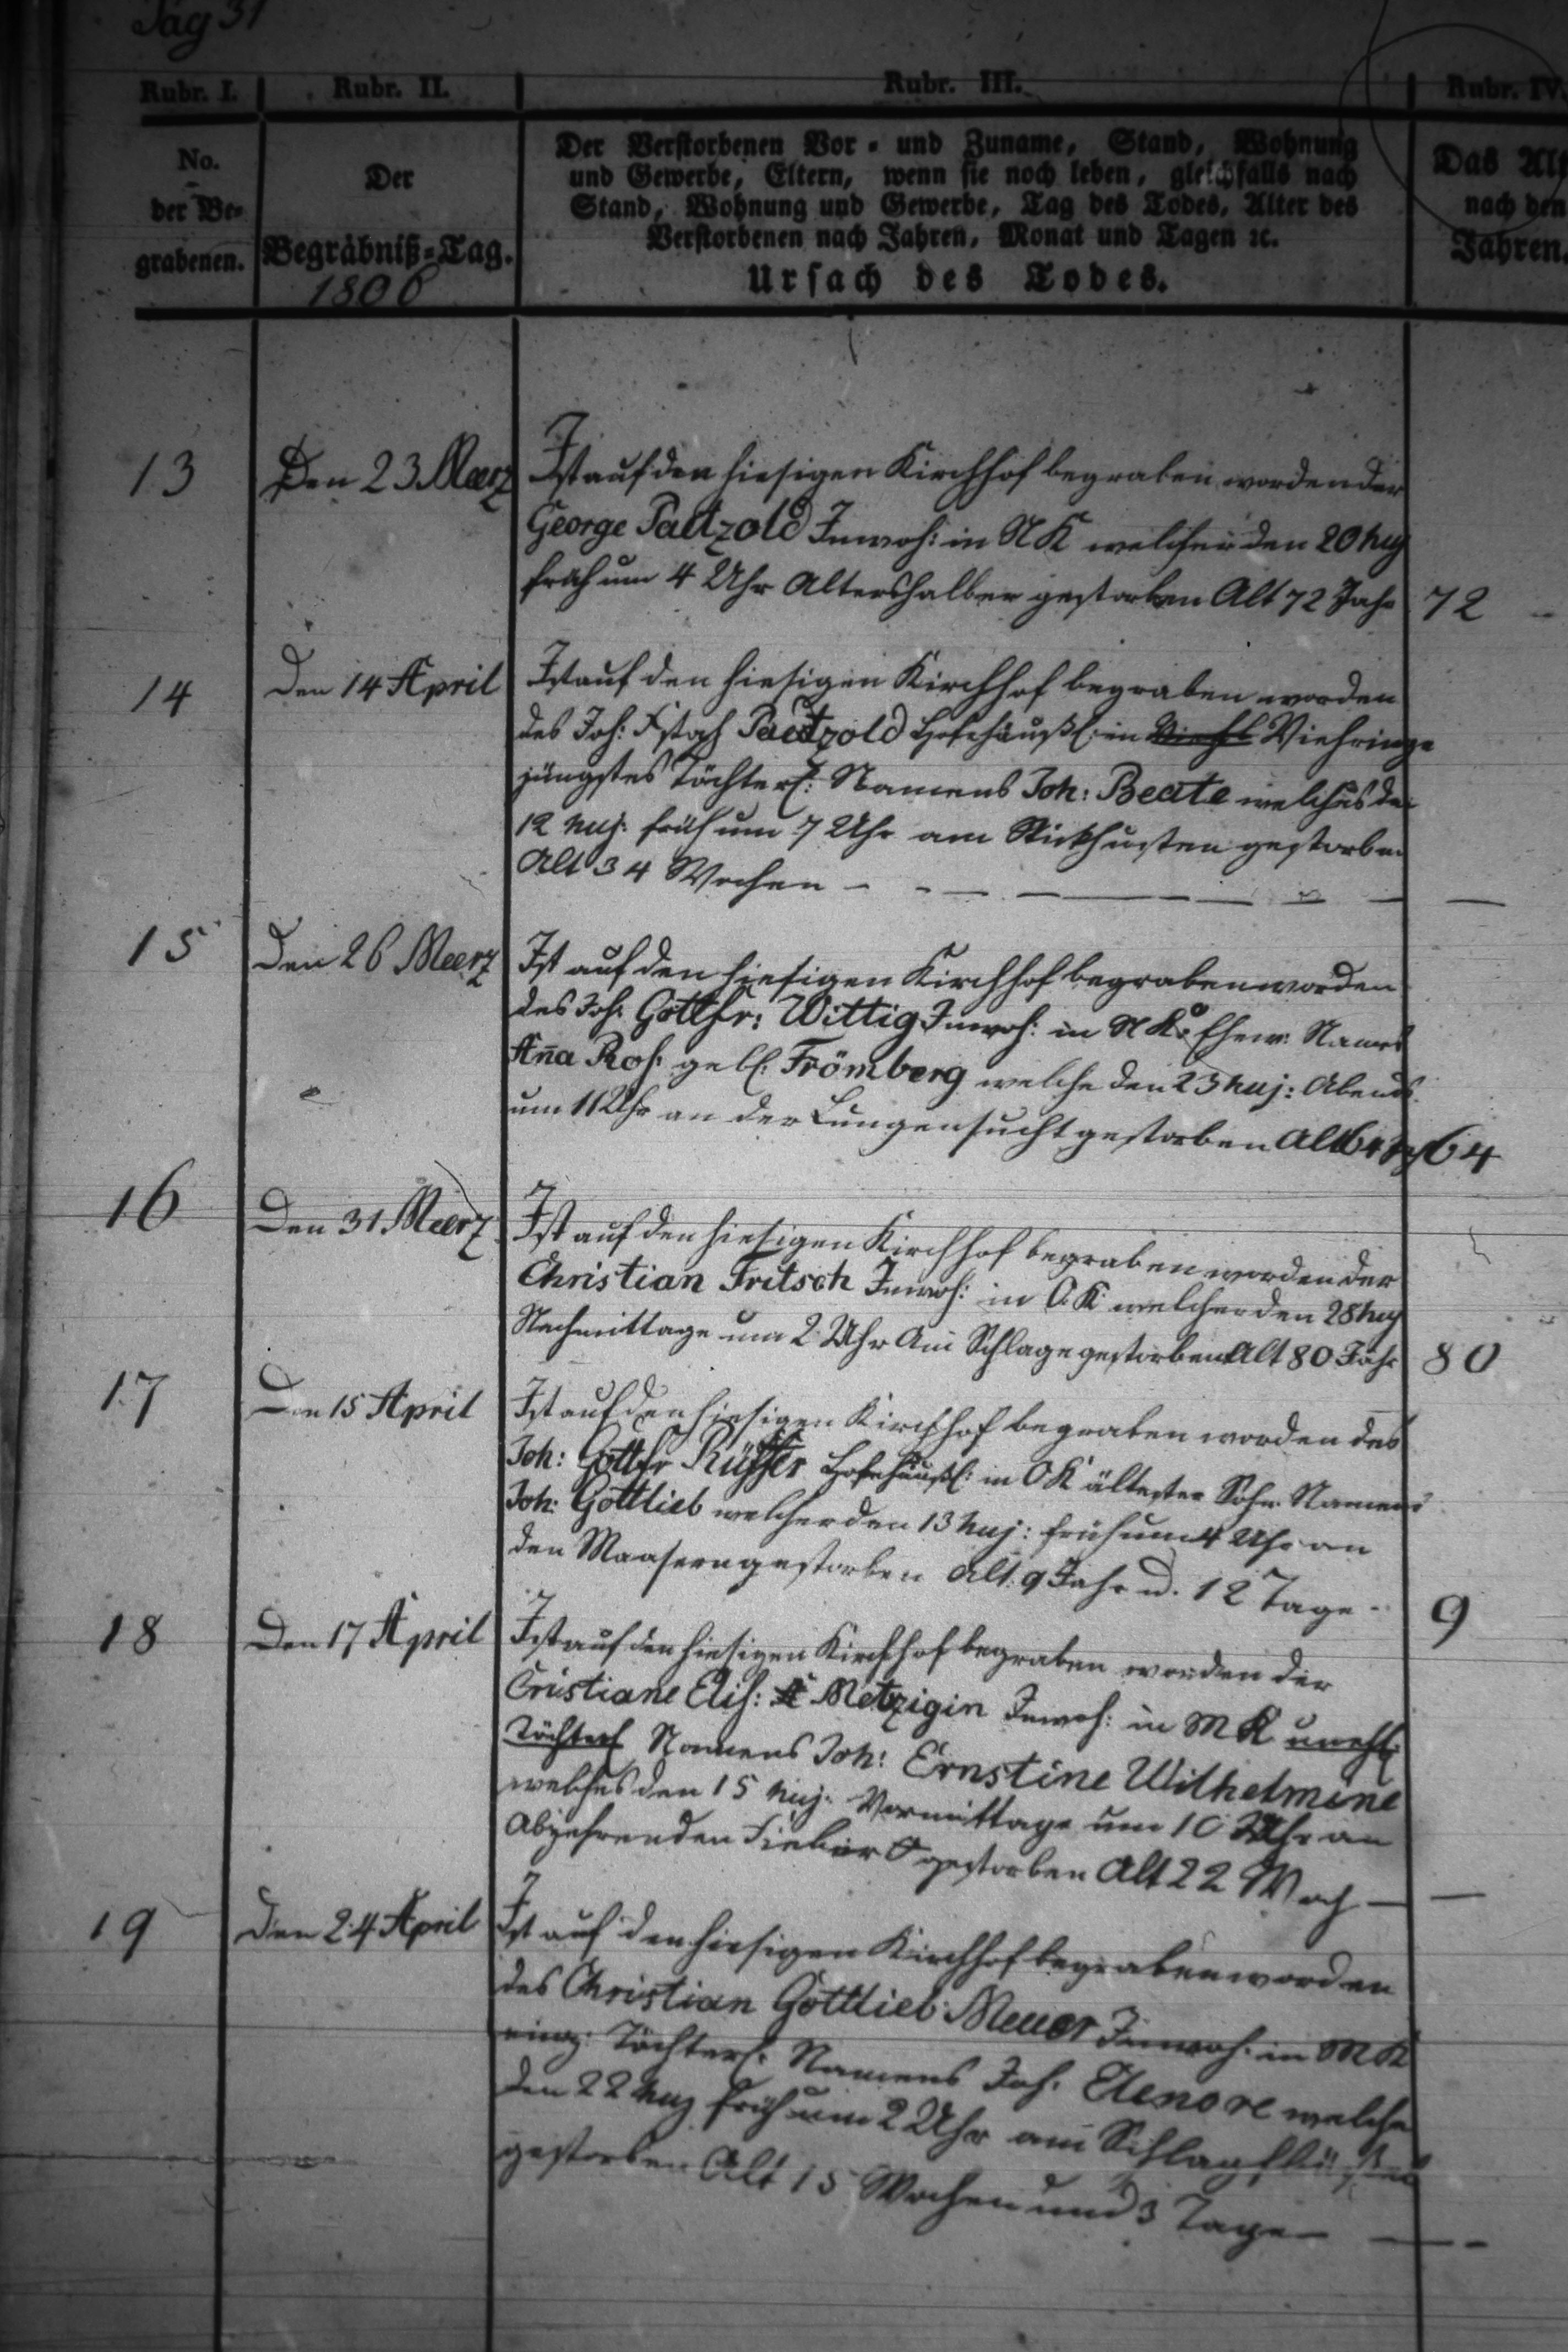 Pag 31
Rubr. I. Rubr. II. Rubr. III. Rubr. IV.
No.
der Be-
grabenen.
Der
Begräbniß-Tag.
1806
Der Verstorbenen Vor- und Zuname, Stand, Wohnung
und Gewerbe, Eltern, wenn sie noch leben, gleichfalls nach
Stand, Wohnung und Gewerbe, Tag des Todes, Alter des
Verstorbenen nach Jahren, Monat und Tagen ꝛc.
Ursach des Todes.
Das Alt
nach den
Jahren.
13 Den 23 Meerz Ist auf den hiesigen Kirchhof begraben worden der
George Paetzold Inwoh: in N K welcher den 20 huj
früh um 4 Uhr Altershalber gestorben Alt 72 Jahr 72
14 Den 14 April Ist auf den hiesigen Kirchhof begraben worden
des Joh: Paetzold Hofehäußl: in Viehringe
jüngstes Töchterl: Namens Joh: Beate welches den
12 huj: früh um 7 Uhr am Stickhusten gestorben
Alt 34 Wochen
15 Den 26 Meerz Ist auf den hiesigen Kirchhof begraben worden
des Joh: Gottfr: Wittig Inwoh: in N K: Ehew: Namens
Aña Ros: geb: Frömberg welche den 23 huj: Abends
um 11 Uhr an der Lungensucht gestorben Alt 64 Jah 64
16 Den 31 Meerz Ist auf den hiesigen Kirchhof begraben worden der
Christian Fritsch Inwoh: in O. K: welcher den 28 huj
Nachmittage um 2 Uhr Am Schlage gestorben Alt 80 Jahr 80
17 Den 15 April Ist auf den hiesigen Kirchhof begraben worden des
Joh: Gottfr Rüffer Hofehäußl: in O K ältester Sohn Namens
Joh: Gottlieb welcher den 13 huj: früh um 4 Uhr an
den Maasern gestorben Alt: 9 Jahr u. 12 Tage 9
18 Den 17 April Ist auf den hiesigen Kirchhof begraben worden der
Cristiane Elis: Metzigin Inwoh: in M K unehl:
Töchterl Namens Joh: Ernstine Wilhelmine
welches den 15 huj: Vormittage um 10 Uhr an
Abzehrenden Fieber gestorben Alt 22 Woch
19 Den 24 April Ist auf den hiesigen Kirchhof begraben worden
des Christian Gottlieb Meuer Inwoh: in M K
einz: Töchterl: Namens Joh: Elenore welche
den 22 huj früh um 2 Uhr am
gestorben Alt 15 Wochen und 3 Tage